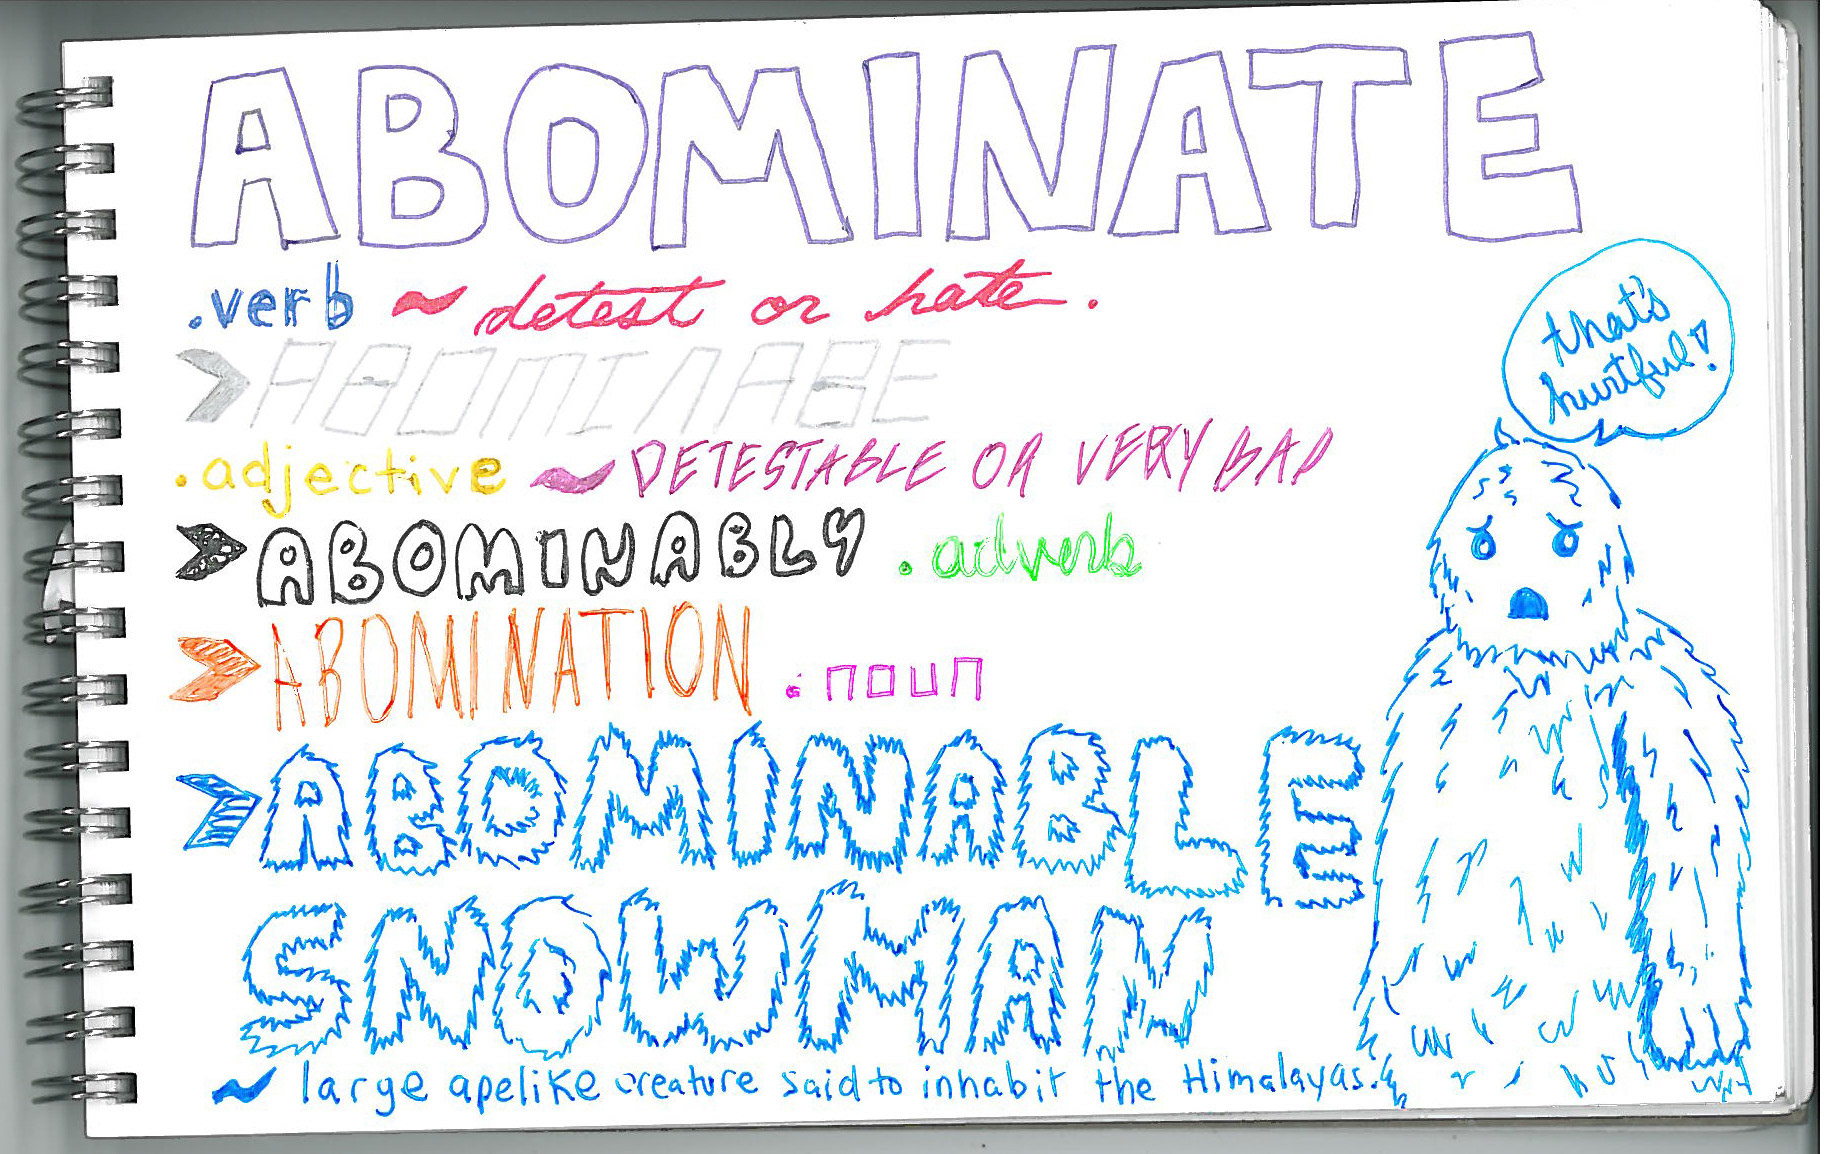 ABOMINATE
.verb ~ detest or hate.
that's
hurtful!
ABOMINABE
.adjective ~ DETESTABLE OR VERY BAD
ABOMINABLY .adverb
ABOMINATION .noun
ABOMINABLE
SNOWMAN
~ large apelike creature said to inhabit the Himalayas.